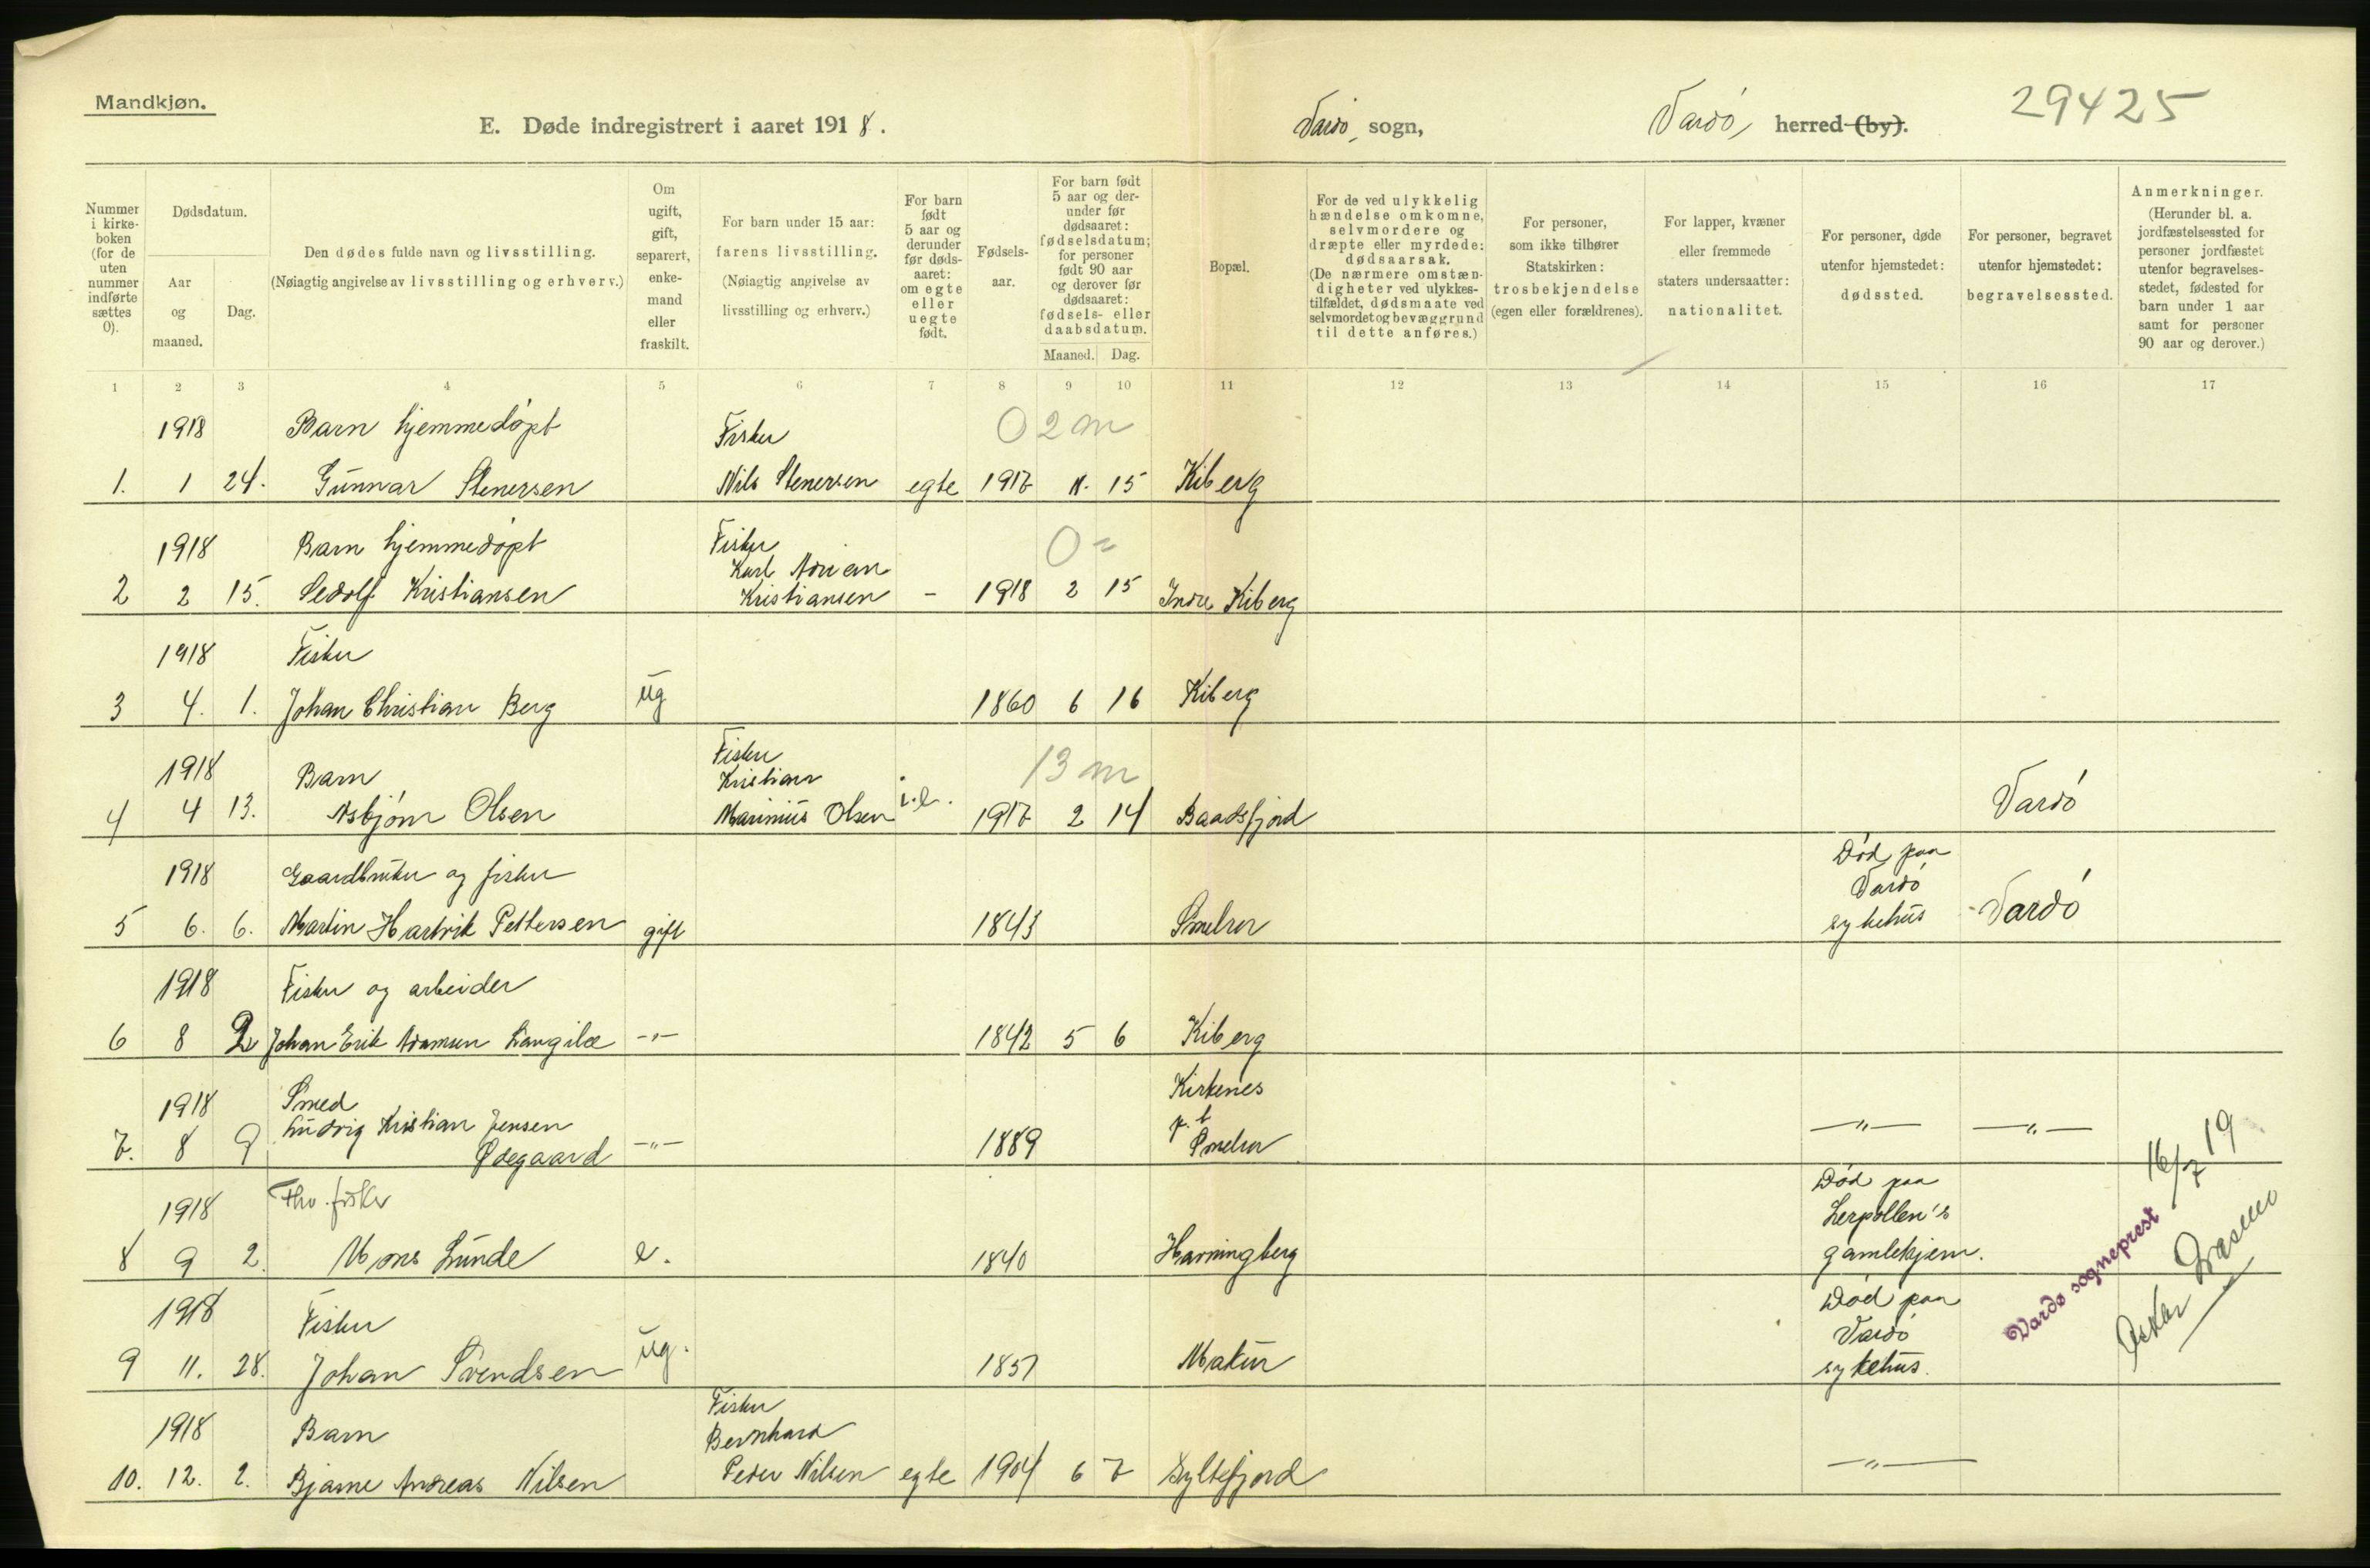 Mandkjøn.
E. Døde indregistrert i aaret 1918.
Vardø sogn,
Vardø herred (by).
29425
Nummer i kirkeboken (for de uten nummer indførte sættes 0).
Dødsdatum.
Aar og maaned.
Dag.
Den dødes fulde navn og livsstilling.
(Nøiagtig angivelse av livsstilling og erhverv.)
Om ugift, gift, separert, enkemand eller fraskilt.
For barn under 15 aar:
farens livsstilling.
(Nøiagtig angivelse av livsstilling og erhverv.)
For barn født 5 aar og derunder før dødsaaret: om egte eller uegte født.
Fødselsaar.
For barn født 5 aar og derunder før dødsaaret: fødselsdatum; for personer født 90 aar og derover før dødsaaret: fødsels- eller daabsdatum.
Maaned. Dag.
Bopæl.
For de ved ulykkelig hændelse omkomne, selvmordere og dræpte eller myrdede: dødsaarsak.
(De nærmere omstændigheter ved ulykkestilfældet, dødsmaate ved selvmordet og bevæggrund til dette anføres.)
For personer, som ikke tilhører Statskirken: trosbekjendelse (egen eller forældrenes).
For lapper, kvæner eller fremmede staters undersaatter: nationalitet.
For personer, døde utenfor hjemstedet: dødssted.
For personer, begravet utenfor hjemstedet: begravelsessted.
Anmerkninger.
(Herunder bl. a. jordfæstelsessted for personer jordfæstet utenfor begravelsesstedet, fødested for barn under 1 aar samt for personer 90 aar og derover.)
1 2 3 4 5 6 7 8 9 10 11 12 13 14 15 16 17
1918 Barn hjemmedøpt Fisker 0 2 m
1. 1 24. Gunnar Stenersen Nils Stenersen egte 1917 11. 15 Kiberg
1918 Barn hjemmedøpt Fisker 0
Karl Adrian
2 2 15. Sedolf Kristiansen Kristiansen - 1918 2 15 Indre Kiberg
1918 Fisker
3 4. 1. Johan Christian Berg ug 1860 6 16 Kiberg
Fisker
1918 Barn Kristian 13 m
4 4 13. Asbjørn Olsen Marinius Olsen 1917 2 14 Baadsfjord Vardø
1918 Gaardbruker og fisker Død paa
Vardø
5 6. 6. Martin Hartvik Pettersen gift 1843 Smelror sykehus Vardø
1918 Fisker og arbeider
6 8 2 Johan Erik Adamsen -"- 1842 5 6 Kiberg
1918 Smed Kirkenes
Ludvig Kristian Jensen p.t
7. 8 9 Ødegaard -"- 1889 Smelror -"- -"-
16/7 19
1918 fisker Død paa
Lerpollen's
8 9 2. Mons Lunde e. 1840 Havningberg gamlehjem.
Vardø sogneprest
Oskar
1918 Fisker Død paa
Vardø
9 11. 28. Johan Svendsen ug. 1857 Makur sykehus.
Fisker
1918 Barn Bernhard
10. 12. 2. Bjarne Andreas Nilsen Peder Nilsen egte 1904 6 7 Syltefjord -"-